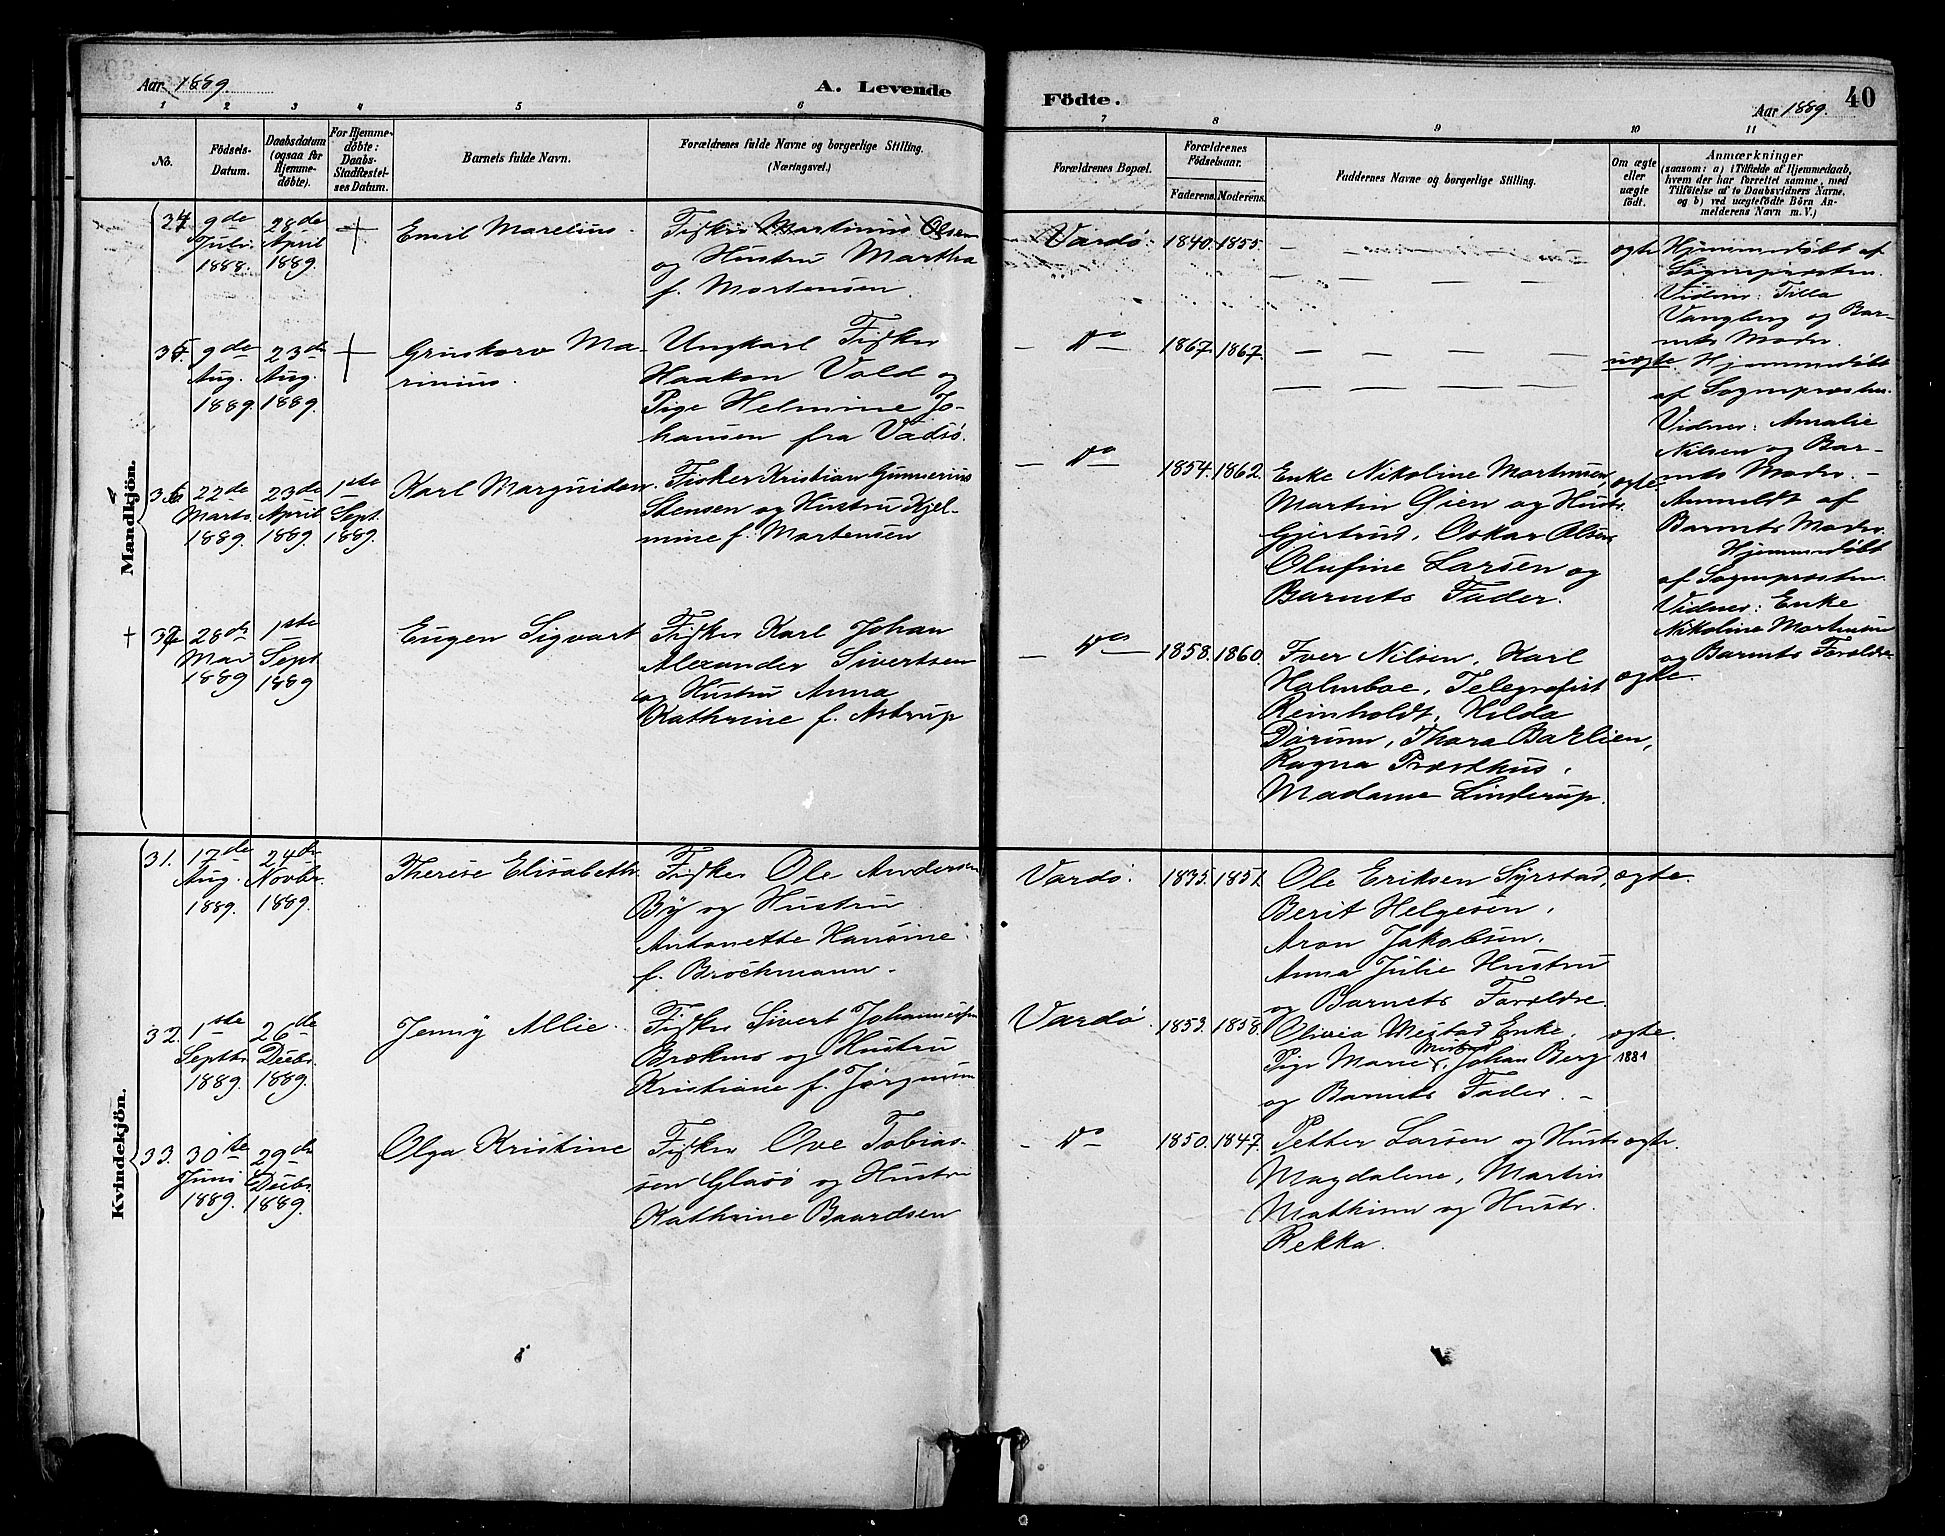 Aar 1889.
A. Levende
Födte.
Aar 1889.
40
1 2 3 4 5 6 7 8 9 10 11
No.
Födsels-Datum.
Daabsdatum (ogsaa for Hjemmedøbte).
For Hjemmedøbte: Daabs-Stadfæstelses Datum.
Barnets fulde Navn.
Forældrenes fulde Navne og borgerlige Stilling.
(Næringsvei.)
Forældrenes Bopæl.
Forældrenes Födselsaar.
Faderens.
Moderens.
Faddernes Navne og borgerlige Stilling.
Om ægte eller uægte födt.
Anmærkninger
(saasom: a) i Tilfælde af Hjemmedaab, hvem der har forrettet samme, med Tilföielse af to Daabsvidners Navne, og b) ved uægtefödte Börn Anmelderens Navn m. V.)
Mandkjön.
34
9de Juli 1888.
28de April 1889.
Emil Marelius.
Fisker Martinus Olsen
og Hustru Martha
f. Mortensen.
Vardö.
1840.
1855.
ægte
Hjemmedøbt af
Sognepræsten.
Vidner: Tilla
Vangberg og Bar-
nets Moder.
35.
9de Aug. 1889.
23de Aug. 1889.
Ma-
rinius.
Ungkarl Fisker
Haakon Vold og
Pige Helmine Jo-
hansen fra Vadsö.
Do
1867.
1867.
uægte
Hjemmedøbt
af Sognepræsten.
Vidner: Amalie
Nilsen og Bar-
nets Moder. –
Anmeldt af
Barnets Moder.
36
22de Marts 1889.
23de April 1889.
1ste Sept. 1889.
Karl Marquidan.
Fisker Kristian Gunnerius
Stensen og Hustru Hjel-
mine f. Mortensen
Do
1854.
1862.
Enke Nikoline Mortensen,
Martin Øien og Hustr.
Gjertrud, Oskar Olsen,
Olufine Larsen og
Barnets Fader.
ægte
Hjemmedøbt
af Sognepræsten.
Vidner: Enke
Nikoline Mortensen
og Barnets Forældre
37
28de Mar 1889
1ste Sept 1889
Eugen Sigvart
Fisker Karl Johan
Alexander Sivertsen
og Hustru Anna
Kathrine f. Astrup
Do
1858.
1860.
Iver Nilsen, Karl
Holmboe, Telegrafist
Reinholdt, Hilda
Dørum, Thora Barlien,
Ragna Præsthus,
Madame Linderup.
ægte.
Kvindekjön.
31.
17de Aug. 1889.
24de Novbr. 1889.
Therese Elisabeth.
Fisker Ole Andersen
By og Hustru
Antonette Hansine
f. Brochmann.
Vardö.
1835.
1851
Ole Eriksen Syrstad,
Berit Helgesen,
Aron Jakobsen,
Anna Julie Hustru
og Barnets Forældre.
ægte.
32.
1ste Septbr. 1889.
26de Decbr. 1889.
Jenny Allie.
Fisker Sivert Johannesen
Brækmo og Hustru
Kristiane f. Jørgensen
Vardö
1853.
1858.
Olivia Mestad Enke,
Pige Marie Mestad, Johan Berg
og Barnets Fader. –
ægte.
1881
33.
30te Juni 1889.
29de Decbr. 1889.
Olga Kristine
Fisker Ove Tobias-
sen Glasö og Hustru
Kathrine Baardsen
Do
1850.
1847.
Petter Larsen og Hustr.
Magdalene, Martin
Mathisen og Hustr.
Rekka.
ægte.